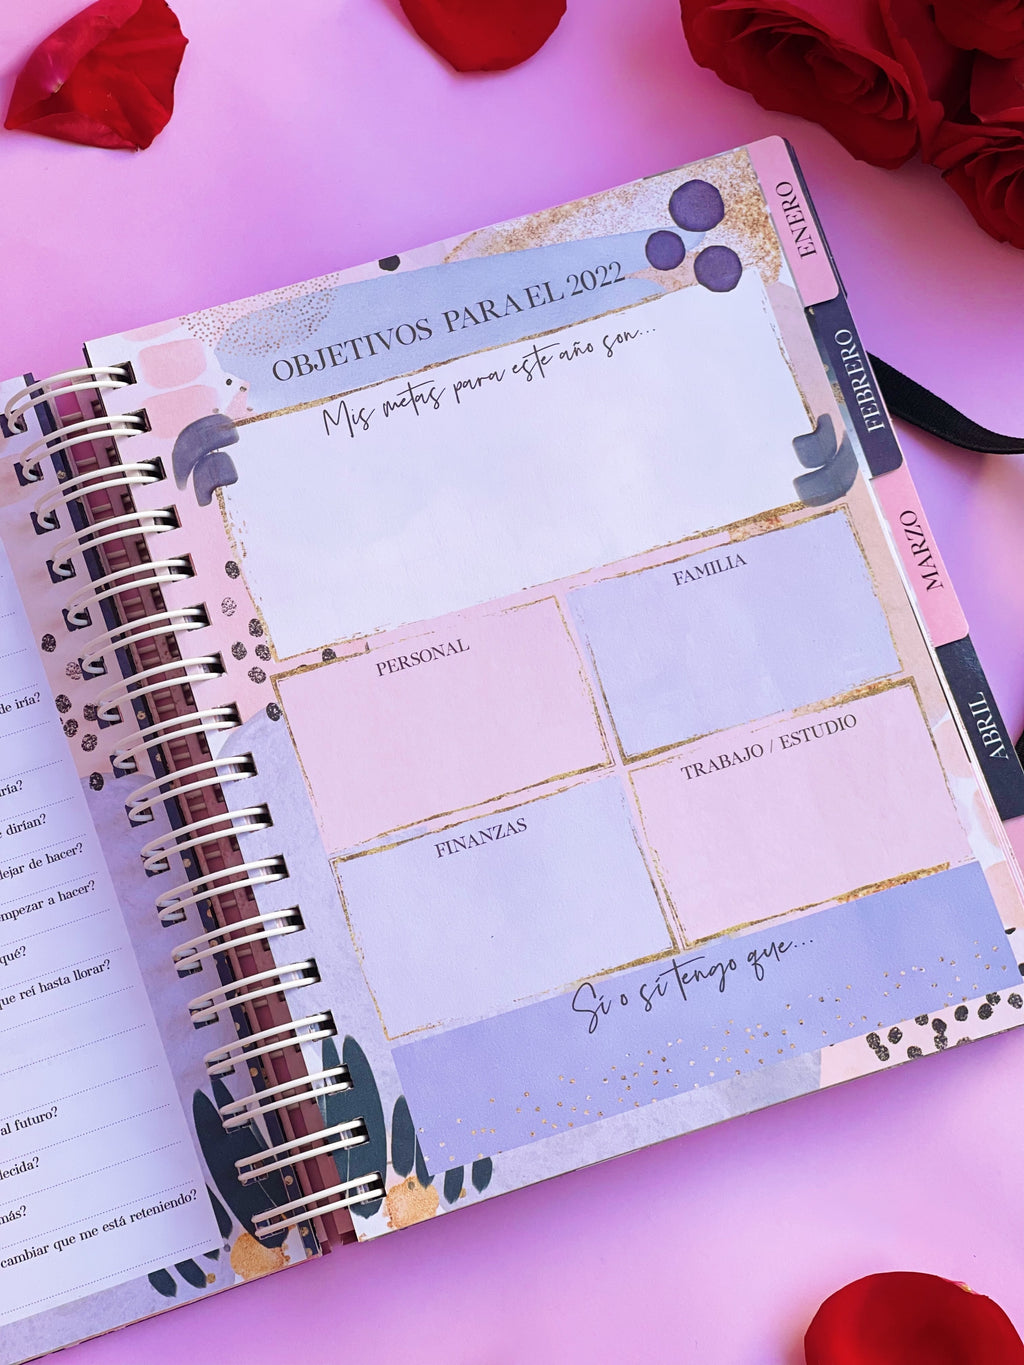 de iría?
ría?
dirían?
dejar de hacer?
empezar a hacer?
qué?
que reí hasta llorar?
al futuro?
más?
cambiar que me está reteniendo?
OBJETIVOS PARA EL 2022
Mis metas para este año son...
PERSONAL
FAMILIA
FINANZAS
TRABAJO / ESTUDIO
Sí o sí tengo que...
ENERO
FEBRERO
MARZO
ABRIL